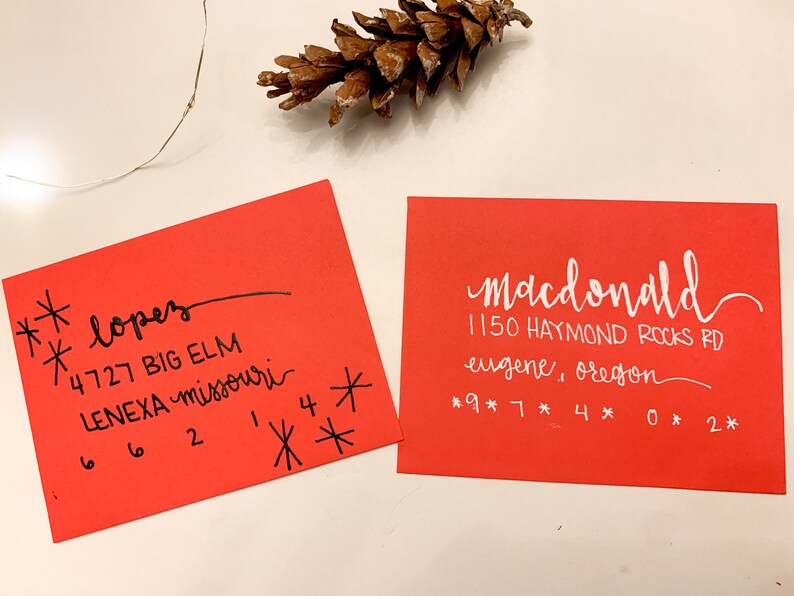 lopez
4727 BIG ELM
LENEXA missouri
6 6 2 1 4
macdonald
1150 HAYMOND ROCKS RD
eugene, oregon
*9*7*4*0*2*